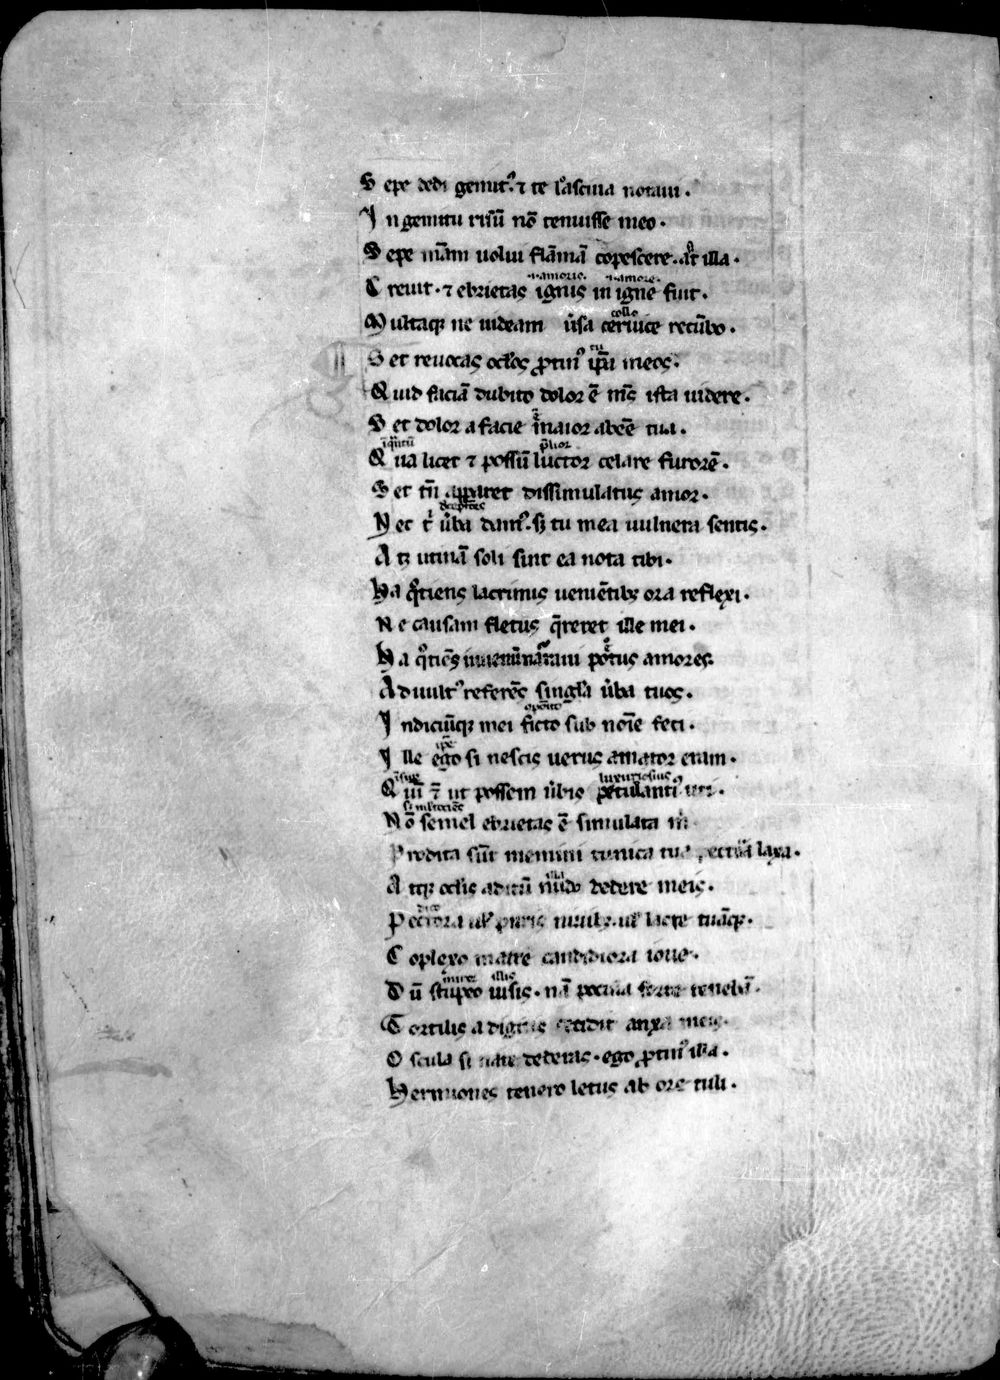 S epe dedi gemit᷒ ⁊ te lᷓasciua notaui .
I n gemitu risū nō tenuisse meo .
S epe mᷓam uolui flāmā cōpescere . at illa .
.i. amoris. .i. amore.
C reuit . ⁊ ebrietas ignis in igne fuit .
collo
M ultaqꝫ ne uideam ūsa ceruice recūbo .
tu
S et reuocas oclōs ꝓtin᷒ ip̄a meos .
Q uid faciā dubito dolor ē mis ista uidere .
S et dolor a facie maior abeē tua .
inqᷓntū
Q ua licet ⁊ possū luctor celare furorē .
S et tn̄ apparet dissimulatus amor .
N ec tⁱ ūba dant᷒ . sꝫ tu mea uulnera sentis .
A tꝫ utinā soli sint ea nota tibi .
H a qͦtiens lacrimis ueniētibꝫ ora reflexi .
N e causam fletus q̄reret ille mei .
H a qͦtiēs iuuenū narraui potus amores
A d uult᷒ referēs singᷓla ūba tuos .
I ndiciūqꝫ mei ficto sub noīe feci .
ip̄e
I lle ego si nescis uerus amator eram .
luxuriosius
Q uī ⁊ ut possem ūbis petulanti᷒ uti .
N ō semel ebrietas ē simulata mⁱ
P rodita sūt memini tunica tua pectora laxa .
illa
A tqꝫ oclis aditū nudo dedere meis .
P ectora uł puris niuibꝫ . uł lacte tuāqꝫ .
C oplexo matrē candidiora ioue .
illis
D ū stupeo uisis . nā pocula forte tenebā .
T ortilis a digitis cecidit ansa meis .
O scula si nate dederas . ego ꝓtin᷒ illa .
H ermiones tenero letus ab ore tuli .